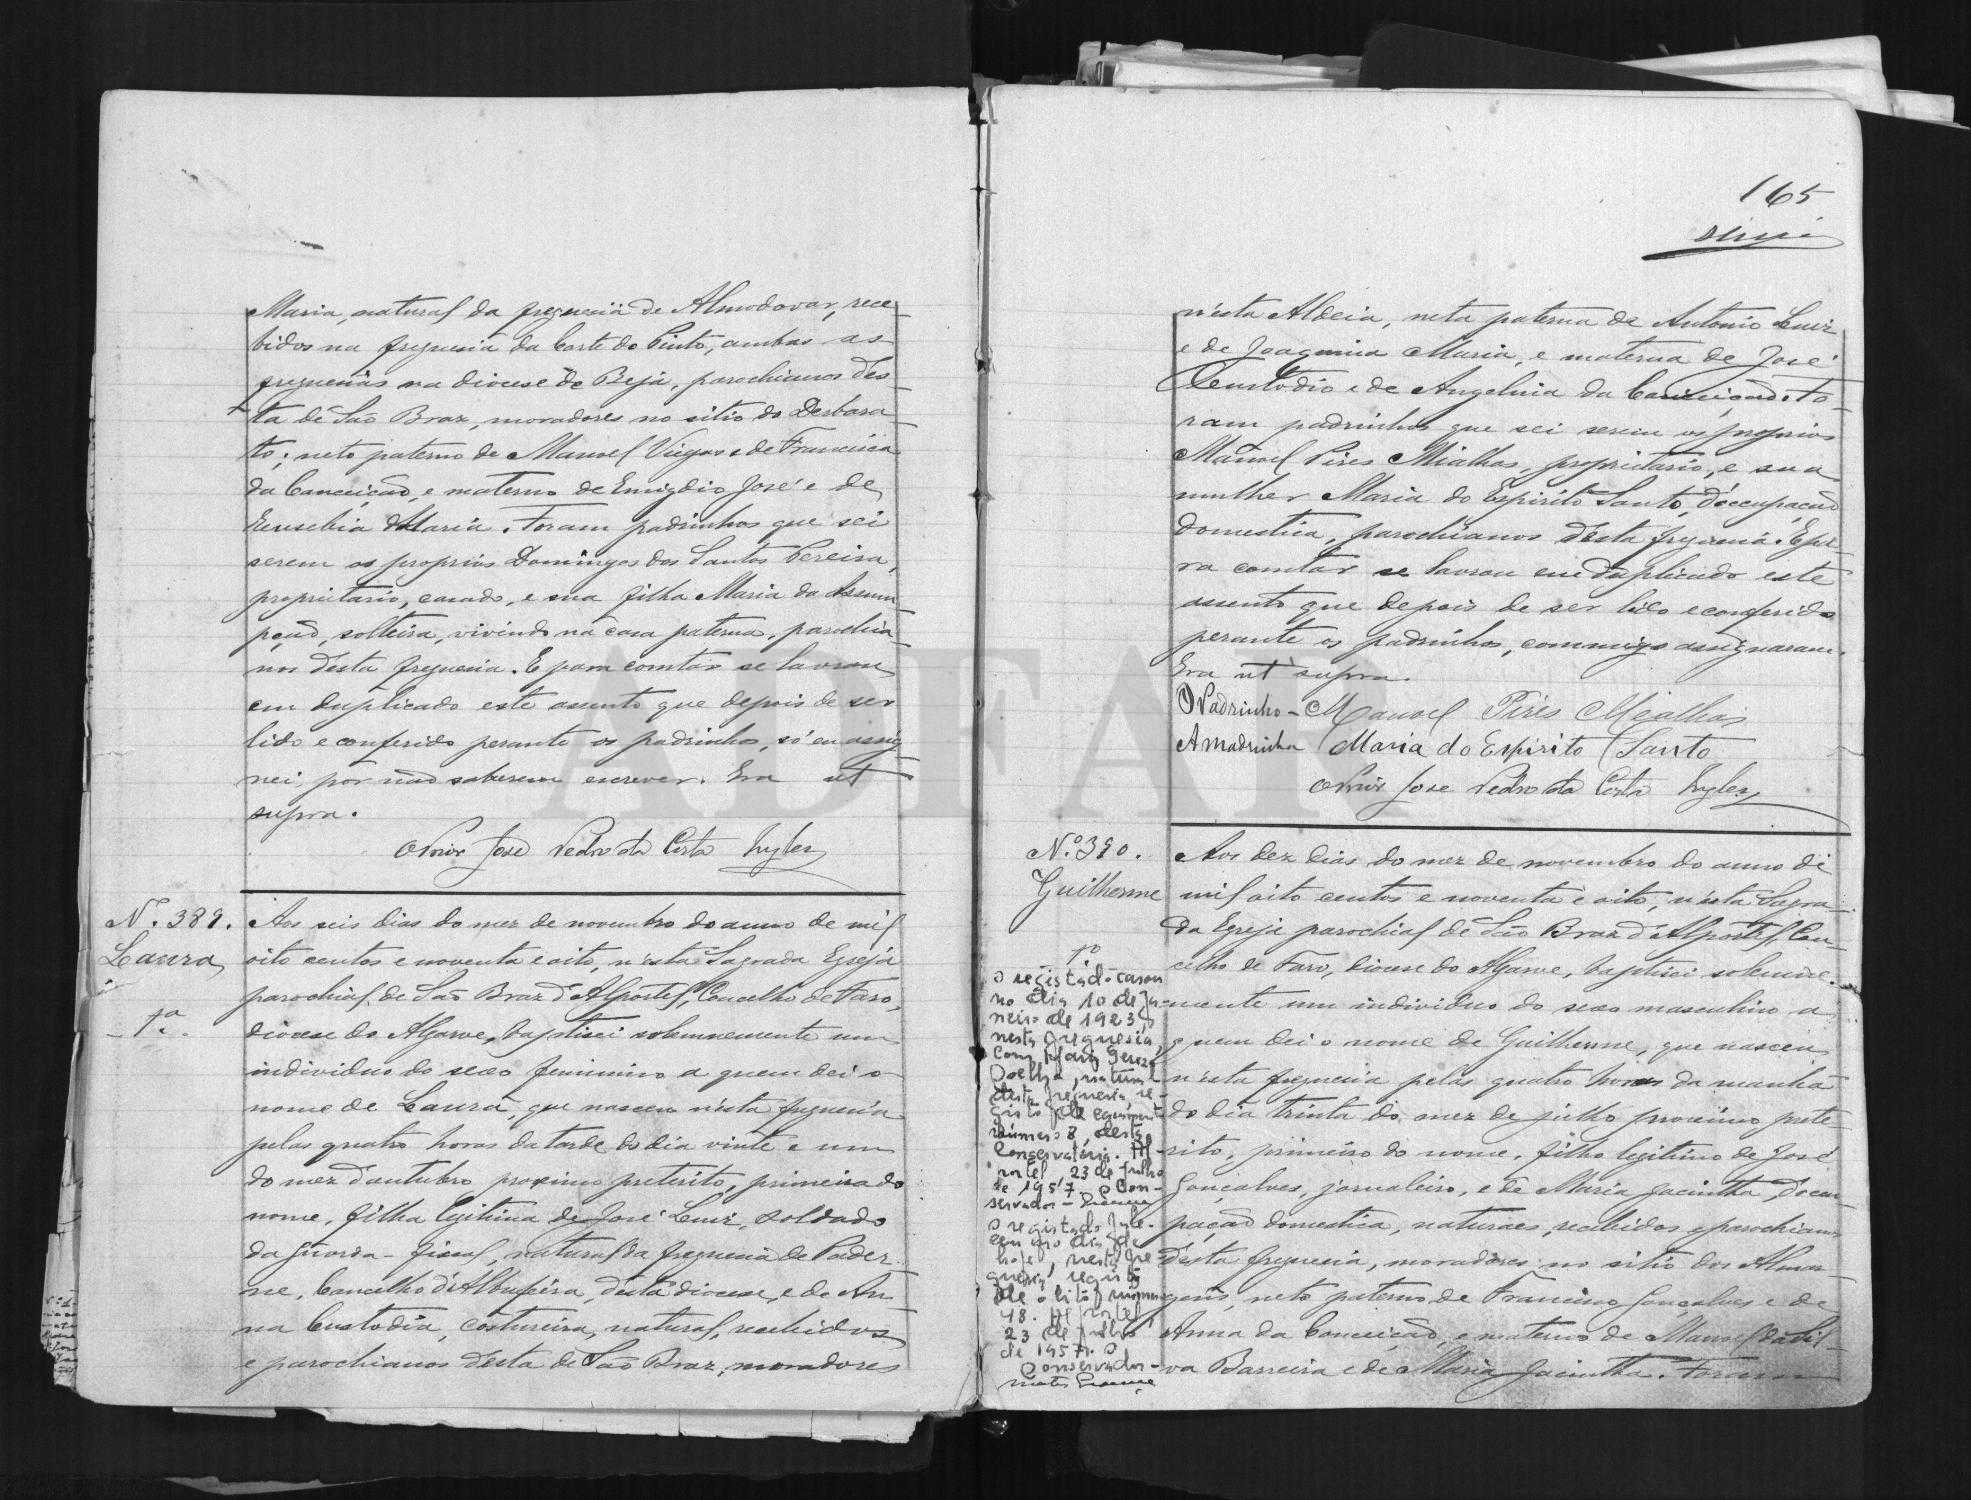 Maria, natural da freguesia de Almodovar, rece-
bidos na freguesia da Corte do Pinto, ambas as
freguesias na diocese de Beja, parochianos des-
ta de São Braz, moradores no sitio do Desbara-
to; neto paterno de Manoel Viegas e de Francisca
da Conceição, e materno de Emigdio José e de
Eusebia Maria. Foram padrinhos que sei
serem os proprios Domingos dos Santos Pereira,
proprietario, casado, e sua filha Maria da Assum-
pção, solteira, vivindo na casa paterna, parochia-
nos desta freguesia. E para constar se lavrou
em duplicado este assento que depois de ser
lido e conferido perante os padrinhos, só eu assig-
nei, por não saberem escrever. Era ut
supra.
O Prior José Pedro da Costa
Nº. 389.
Laura
1ª.
Aos seis dias do mez de novembro do anno de mil
oito centos e noventa e oito, n'esta Sagrada Egreja
parochial de São Braz d'Alportel, Concelho de Faro,
diocese do Algarve, baptisei solemnemente um
individuo do sexo feminino a quem dei o
nome de Laura, que nasceu n'esta freguesia
pelas quatro horas da tarde do dia vinte e um
do mez d'outubro proximo preterito, primeira do
nome, filha legitima de José Luiz, soldado
da Guarda-fiscal, natural da freguesia de Pader-
ne, Concelho d'Albufeira, desta diocese, e de An-
na Custodia, costureira, natural, recebidos
e parochianos desta de São Braz, moradores
165
n'esta Aldeia, neta paterna de Antonio Luiz
e de Joaquina Maria, e materna de José
Custodio e de Angelina da Conceição. Fo-
ram padrinhos que sei serem os proprios
Manoel Pires Mialhas, proprietario, e sua
mulher Maria do Espirito Santo, d'occupação
domestica, parochianos d'esta freguesia. E pa-
ra constar se lavrou em duplicado este
assento que depois de ser lido e conferido
perante os padrinhos, commigo assignaram.
Era ut supra.
O Padrinho - Manoel Pires Mealhas
A madrinha Maria do Espirito Santo
O Prior José Pedro da Costa
Nº. 390.
Guilherme
Aos dez dias do mez de novembro do anno de
mil oito centos e noventa e oito, n'esta Sagra-
da Egreja parochial de São Braz d'Alportel, Con-
celho de Faro, diocese do Algarve, baptisei solemne-
mente um individuo do sexo masculino a
quem dei o nome de Guilherme, que nasceu
n'esta freguesia pelas quatro horas da manhã
do dia trinta do mez de julho proximo prete-
rito, primeiro do nome, filho legitimo de José
Gonçalves, jornaleiro, e de Maria Jacintha, d'occu-
pação domestica, naturaes, recebidos e parochianos
d'esta freguesia, moradores no sitio dos Almar-
gens, neto paterno de Francisco Gonçalves e de
Anna da Conceição, e materno de Manoel da Sil-
va Barreira e de Maria Jacintha. Foram
1º
o registado casou
no dia 10 de Ja-
neiro de 1923,
nesta freguesia,
com Maria
Coelho, natural
desta freguesia, re-
gisto de casamento
número 8, desta
Conservatória. Al-
portel, 23 de Julho
de 1957. O Con-
servador -
O registado fale-
ceu no dia de
hoje, nesta fre-
guesia, registo
de óbito número
48. Alportel,
23 de Julho
de 1957. O
Conservador -
ADFAR